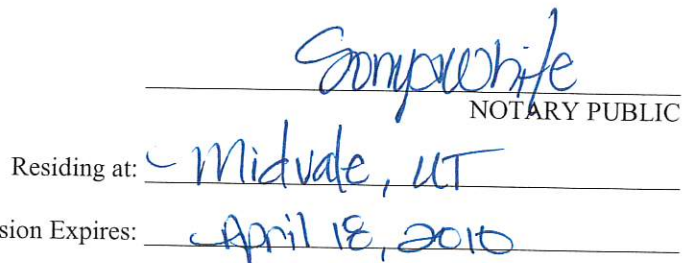 Sonya White
NOTARY PUBLIC
Residing at: Midvale, UT
sion Expires: April 18, 2010